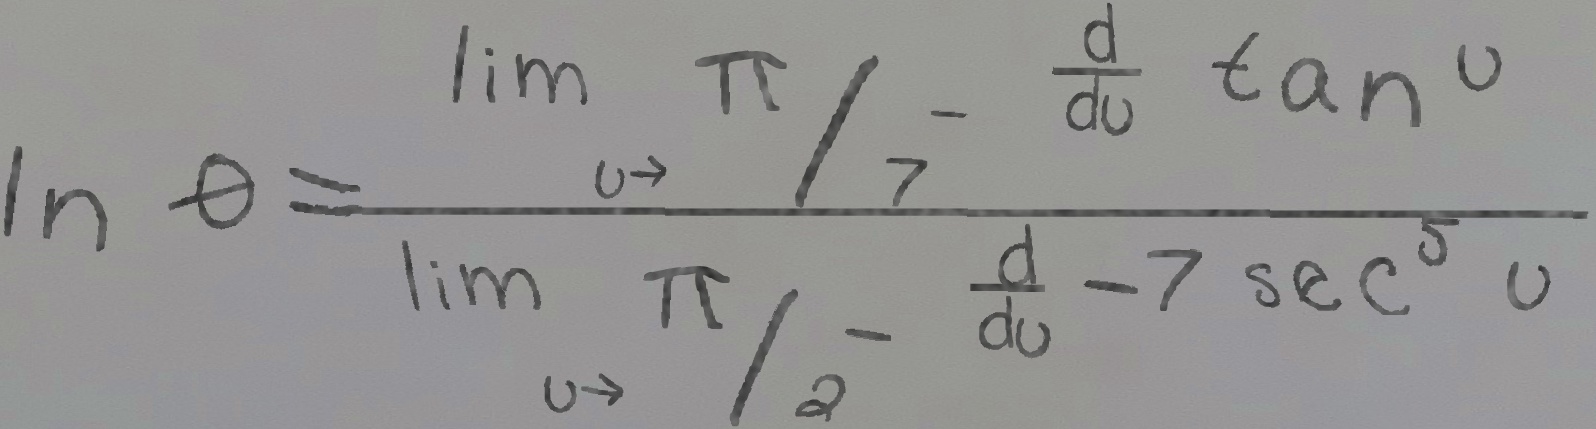 \ln \theta = \frac{\lim_{u \to \pi/7^-} \frac{d}{du} \tan u}{\lim_{u \to \pi/2^-} \frac{d}{du} -7 \sec^5 u}